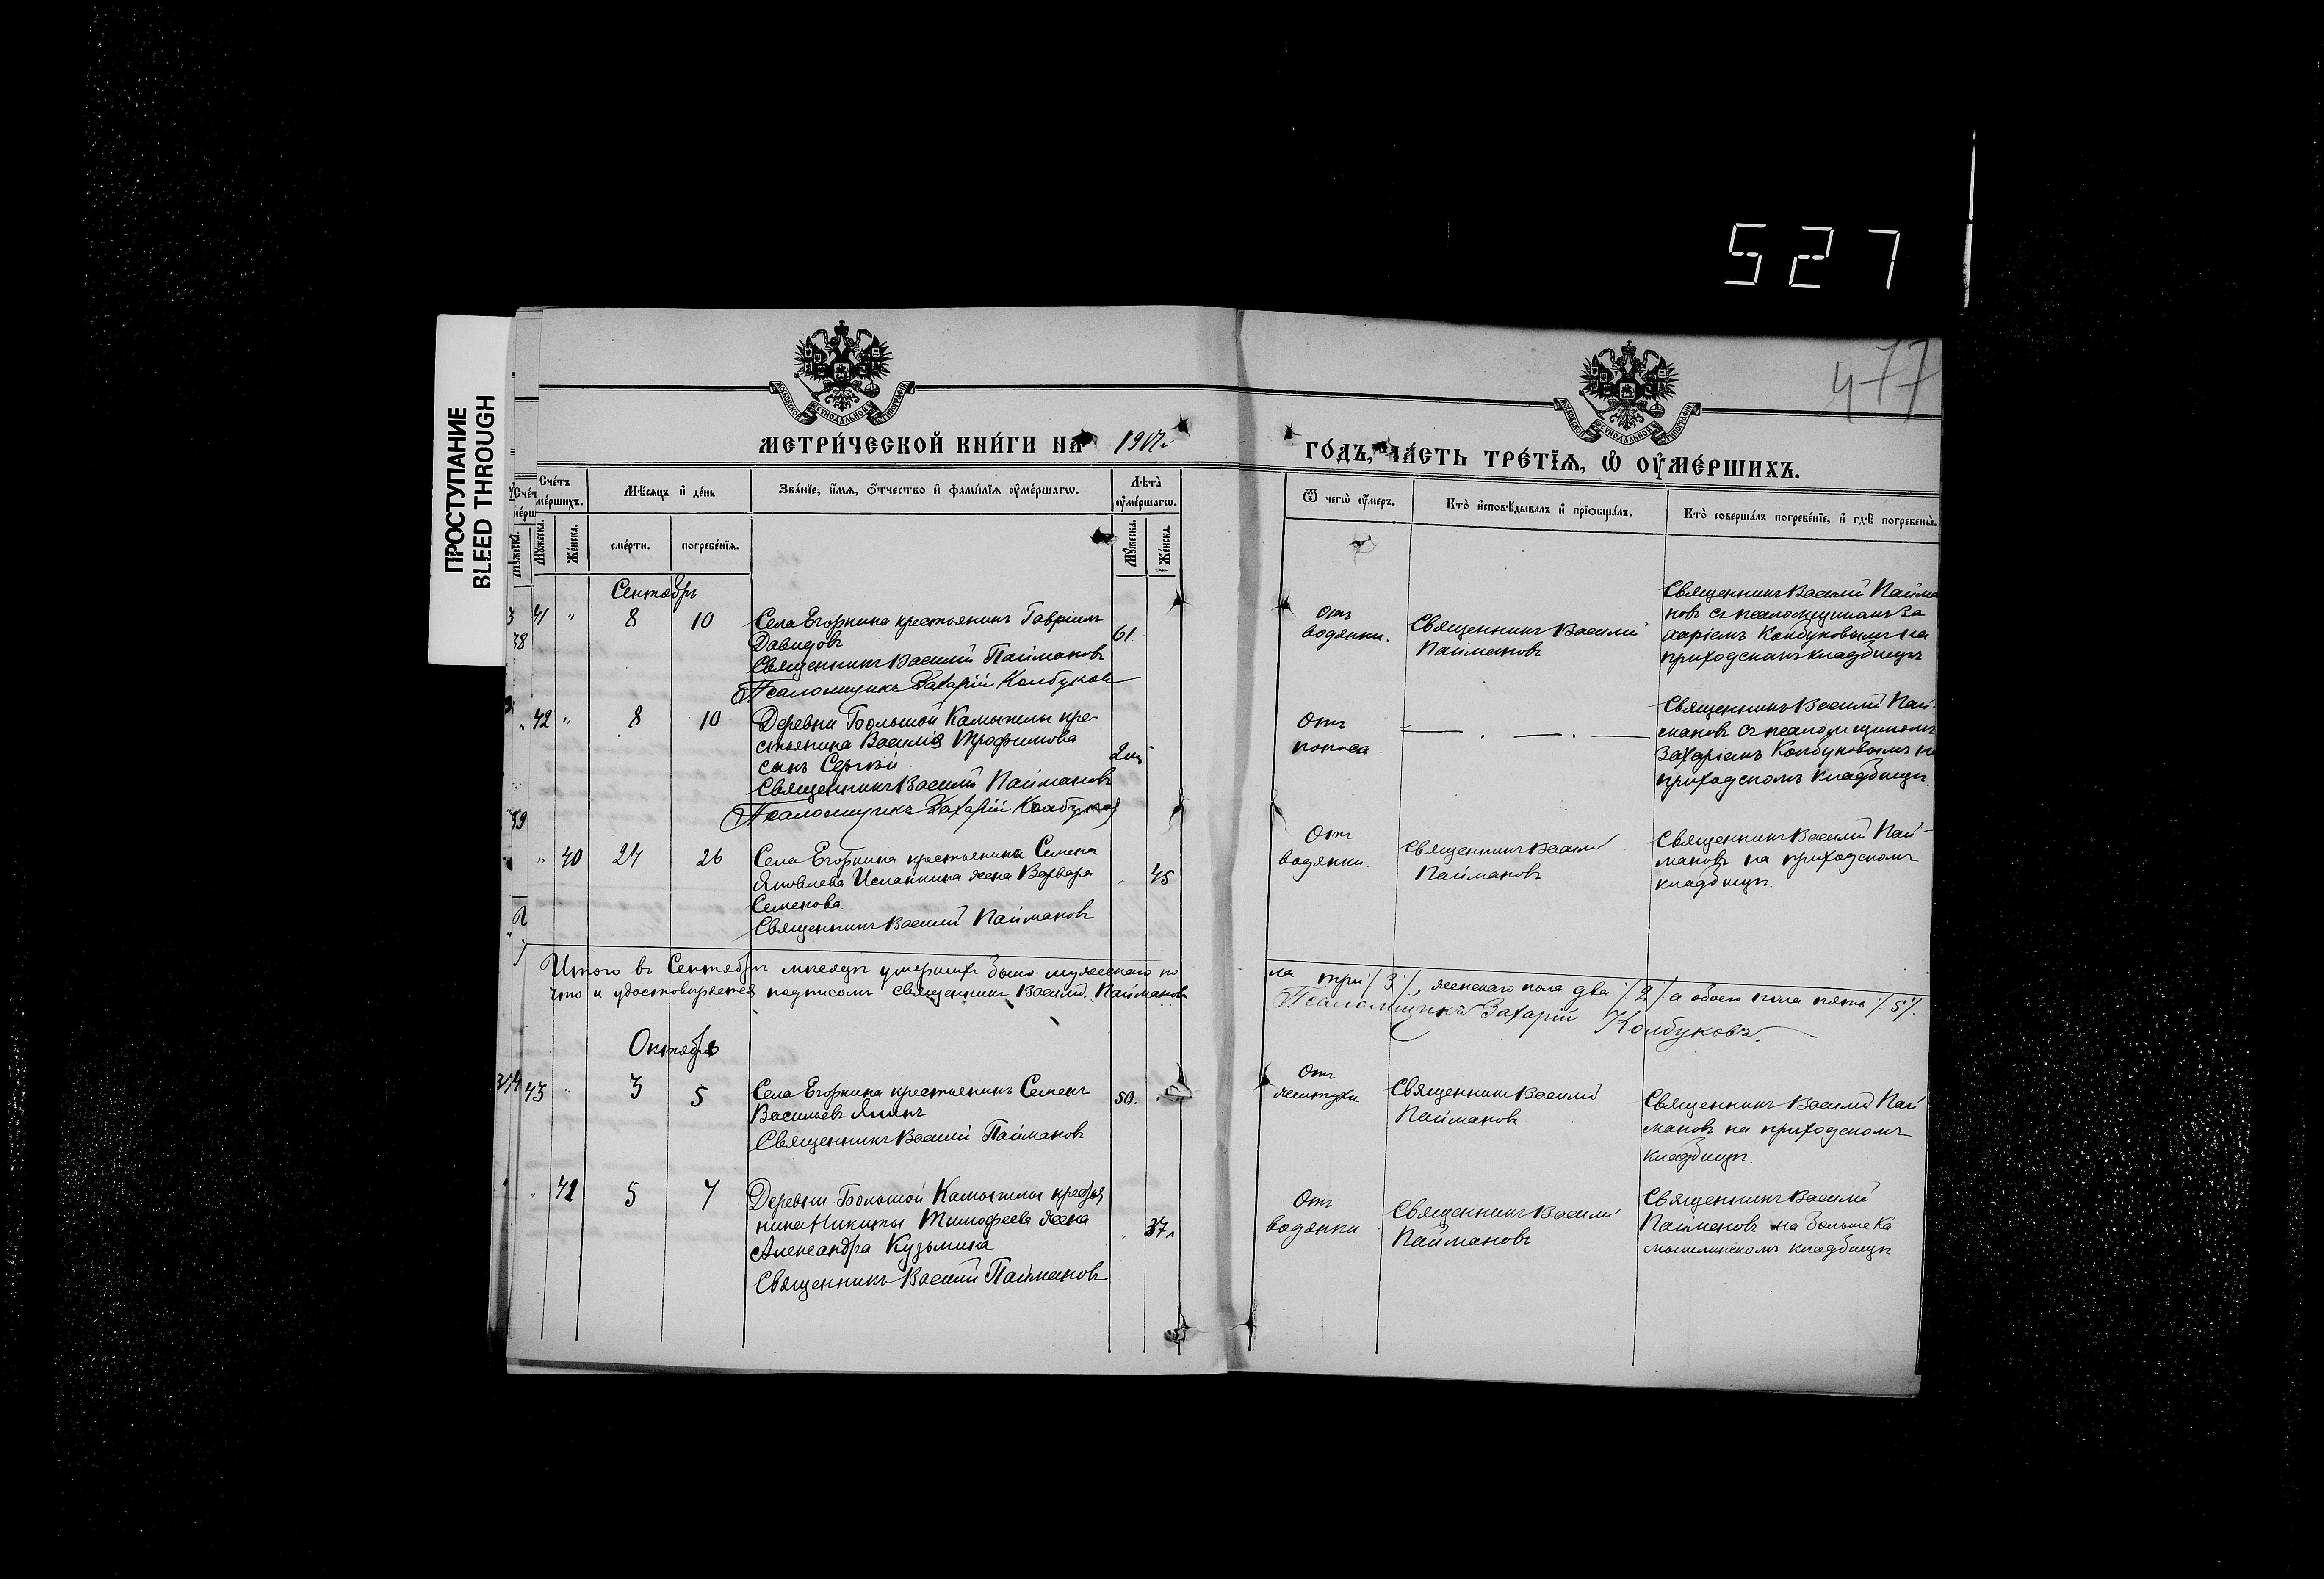 527
477
ПРОСТУПАНИЕ
BLEED THROUGH
МОСКОВСКОЙ СѴНОДАЛЬНОЙ ТИПОГРАФІИ
МОСКОВСКОЙ СѴНОДАЛЬНОЙ ТИПОГРАФІИ
МЕТРИ́ЧЕСКОЙ КНИ́ГИ НА 1907
ГО́ДЪ, ЧА́СТЬ ТРЕ́ТЇѦ, Ѡ҆ ОУ҆МЕ́РШИХЪ.
Сче́тъ оу҆ме́ршихъ.
Мѣ́сяцъ и҆ де́нь
Зва́нїе, и҆́мя, ѻ҆́тчество и҆ фами́лїя оу҆ме́ршагѡ.
Лѣ̀та̀ оу҆ме́ршагѡ.
Ѿ чегѡ̀ оу҆́меръ.
Кто̀ и҆сповѣ́дывалъ и҆ прїѻбща́лъ.
Кто̀ соверша́лъ погребе́нїе, и҆ гдѣ̀ погребены̀.
Мꙋ́жеска.
Же́нска.
сме́рти.
погребе́нїя.
Мꙋ́жеска.
Же́нска.
Сентябрь
41 " 8 10
Села Егоркина крестьянинъ Гавріилъ
Давидовъ
61.
Священникъ Василій Паймановъ
Псаломщикъ Захарій Колбуковъ
Отъ
водянки.
Священникъ Василій
Паймановъ
Священникъ Василій Пайма
новъ съ псаломщикомъ За
харіемъ Колбуковымъ на
приходскомъ кладбищѣ
" 42 " 8 10
Деревни Большой Камышлы кре-
стьянина Василія Трофимова
сынъ Сергѣй
Священникъ Василій Паймановъ
Псаломщикъ Захарій Колбуковъ
Отъ
поноса
Священникъ Василій Пай-
мановъ съ псаломщикомъ
Захаріемъ Колбуковымъ на
приходскомъ кладбищѣ.
" 40 24 26
Села Егоркина крестьянина Семена
Яковлева жена Варвара
Семенова
45
Священникъ Василій Паймановъ
Отъ
водянки.
Священникъ Василій
Паймановъ
Священникъ Василій Пай-
мановъ на приходскомъ
кладбищѣ.
Итого въ Сентябрѣ мѣсяцѣ умершихъ было мужескаго по
ла три /3/, женскаго пола два /2/ а обоего пола пять /5/.
что и удостовѣряется подписомъ Священникъ Василій Паймановъ
Псаломщикъ Захарій Колбуковъ.
Октябрь
43 " 3 5
Села Егоркина крестьянинъ Семенъ
Васильевъ
50.
Священникъ Василій Паймановъ
Отъ
желтухи.
Священникъ Василій
Паймановъ
Священникъ Василій Пай
мановъ на приходскомъ
кладбищѣ.
" 41 5 7
Деревни Большой Камышлы крестья
нина Никиты Тимофеева жена
Александра Кузьмина
37
Священникъ Василій Паймановъ
Отъ
водянки
Священникъ Василій
Паймановъ
Священникъ Василій
Паймановъ на больше Ка
мышлинскомъ кладбищѣ